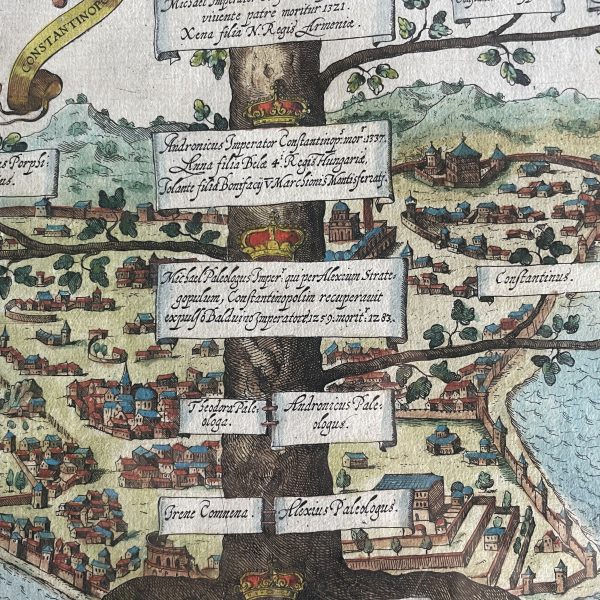 CONSTANTINOP
Michael Imperator
viuente patre moritur 1321.
Xena filia N. Regis Armeniæ.
Andronicus Imperator Constantinop: mor: 1337.
Anna filia Belæ 4. Regis Hungariæ,
Iolante filia Bonifacij V Marchionis Mantisferatj.
us Porphi
us.
Michael Paleologus Imper: qui per Alexium Strate-
gopulum, Constantinopolim recuperauit
expulso Balduino Imperatore 1259. morit: 1283.
Constantinus.
Theodora Pale-
ologa.
Andronicus Pale-
ologus.
Irene Comnena.
Alexius Paleologus.